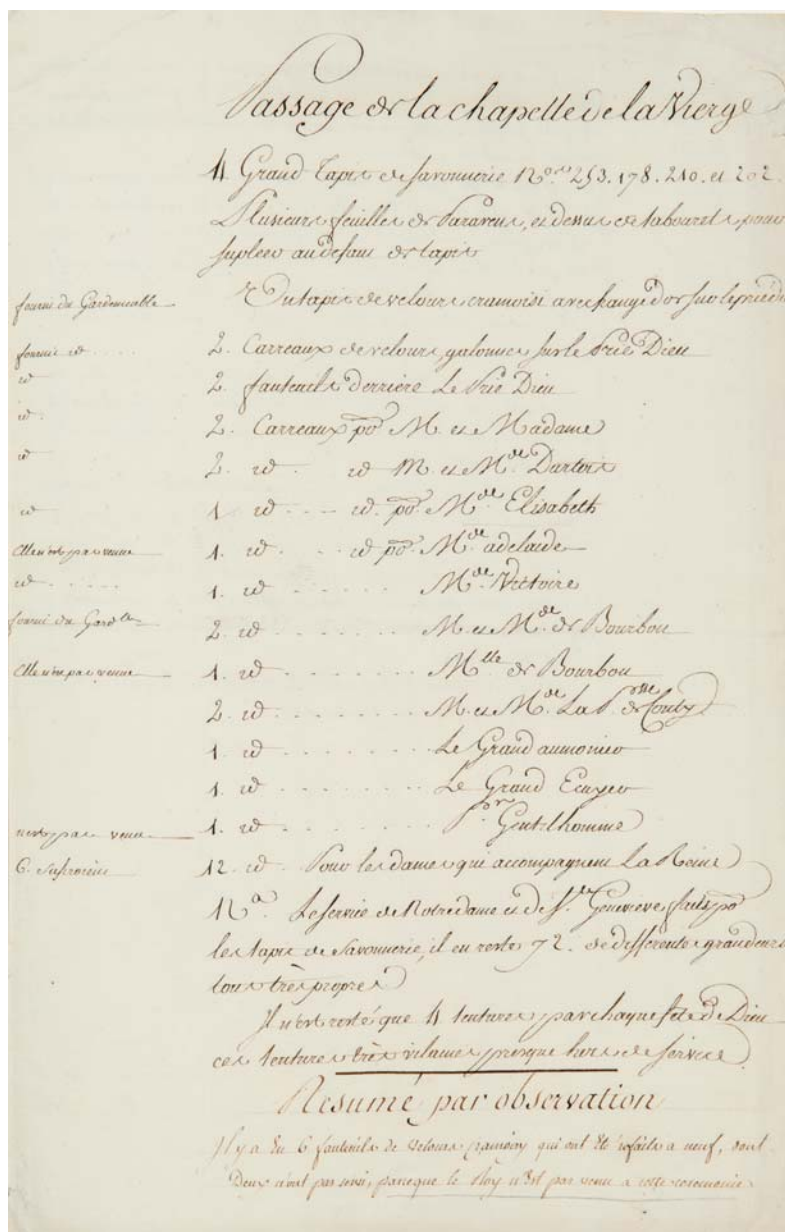 Passage de la chapelle de la Vierge
4 Grand Tapis de Savonnerie Nos 253. 178. 210. et 202.
Plusieurs feuilles de Paravens, et dessus de tabourets pour
supleer au defaut de tapis
fourni du Gardemeuble Un tapis de velours cramoisi avec frange d'or sur le prie di
fourni id ..... 2. Carreaux de velours galonnes sur le Prie Dieu
id 2. fauteuils derrière Le Prie Dieu
id. 2. Carreaux po M. et Madame
id 2. id . id M. et Mde Dartois
id 1. id .... id. po. Mde Elisabeth
Elle n'est pas venue 1. id. ... id po Mde adelaide
id ..... 1. id ....... Mde Victoire
fourni du Garde 2. id ....... M. et Mde de Bourbon
Elle n'est pas venue 1. id ....... Mlle de Bourbon
2. id ....... M. et Mde La Psse de Conty
1. id ....... Le Grand aumonier
1. id ....... Le Grand Ecuyer
n'est pas venu 1. id ....... Pr Gentilhomme
6. 12. id. Pour les dames qui accompagnent La Reine
Na. Le service de Notre dame et de Ste Genevieve faits po
les tapis de Savonnerie, il en reste 72. de differentes grandeurs
tous très propres
Il n'est resté que 4 tentures par chaque fete de Dieu
ces tentures très vilaines presque hors de service
Resumé par observation
Il y a eu 6 fauteuils de velours cramoisy qui ont été refaits a neuf, dont
Deux n'ont pas servi, parceque le Roy n'est pas venu a cette ceremonie